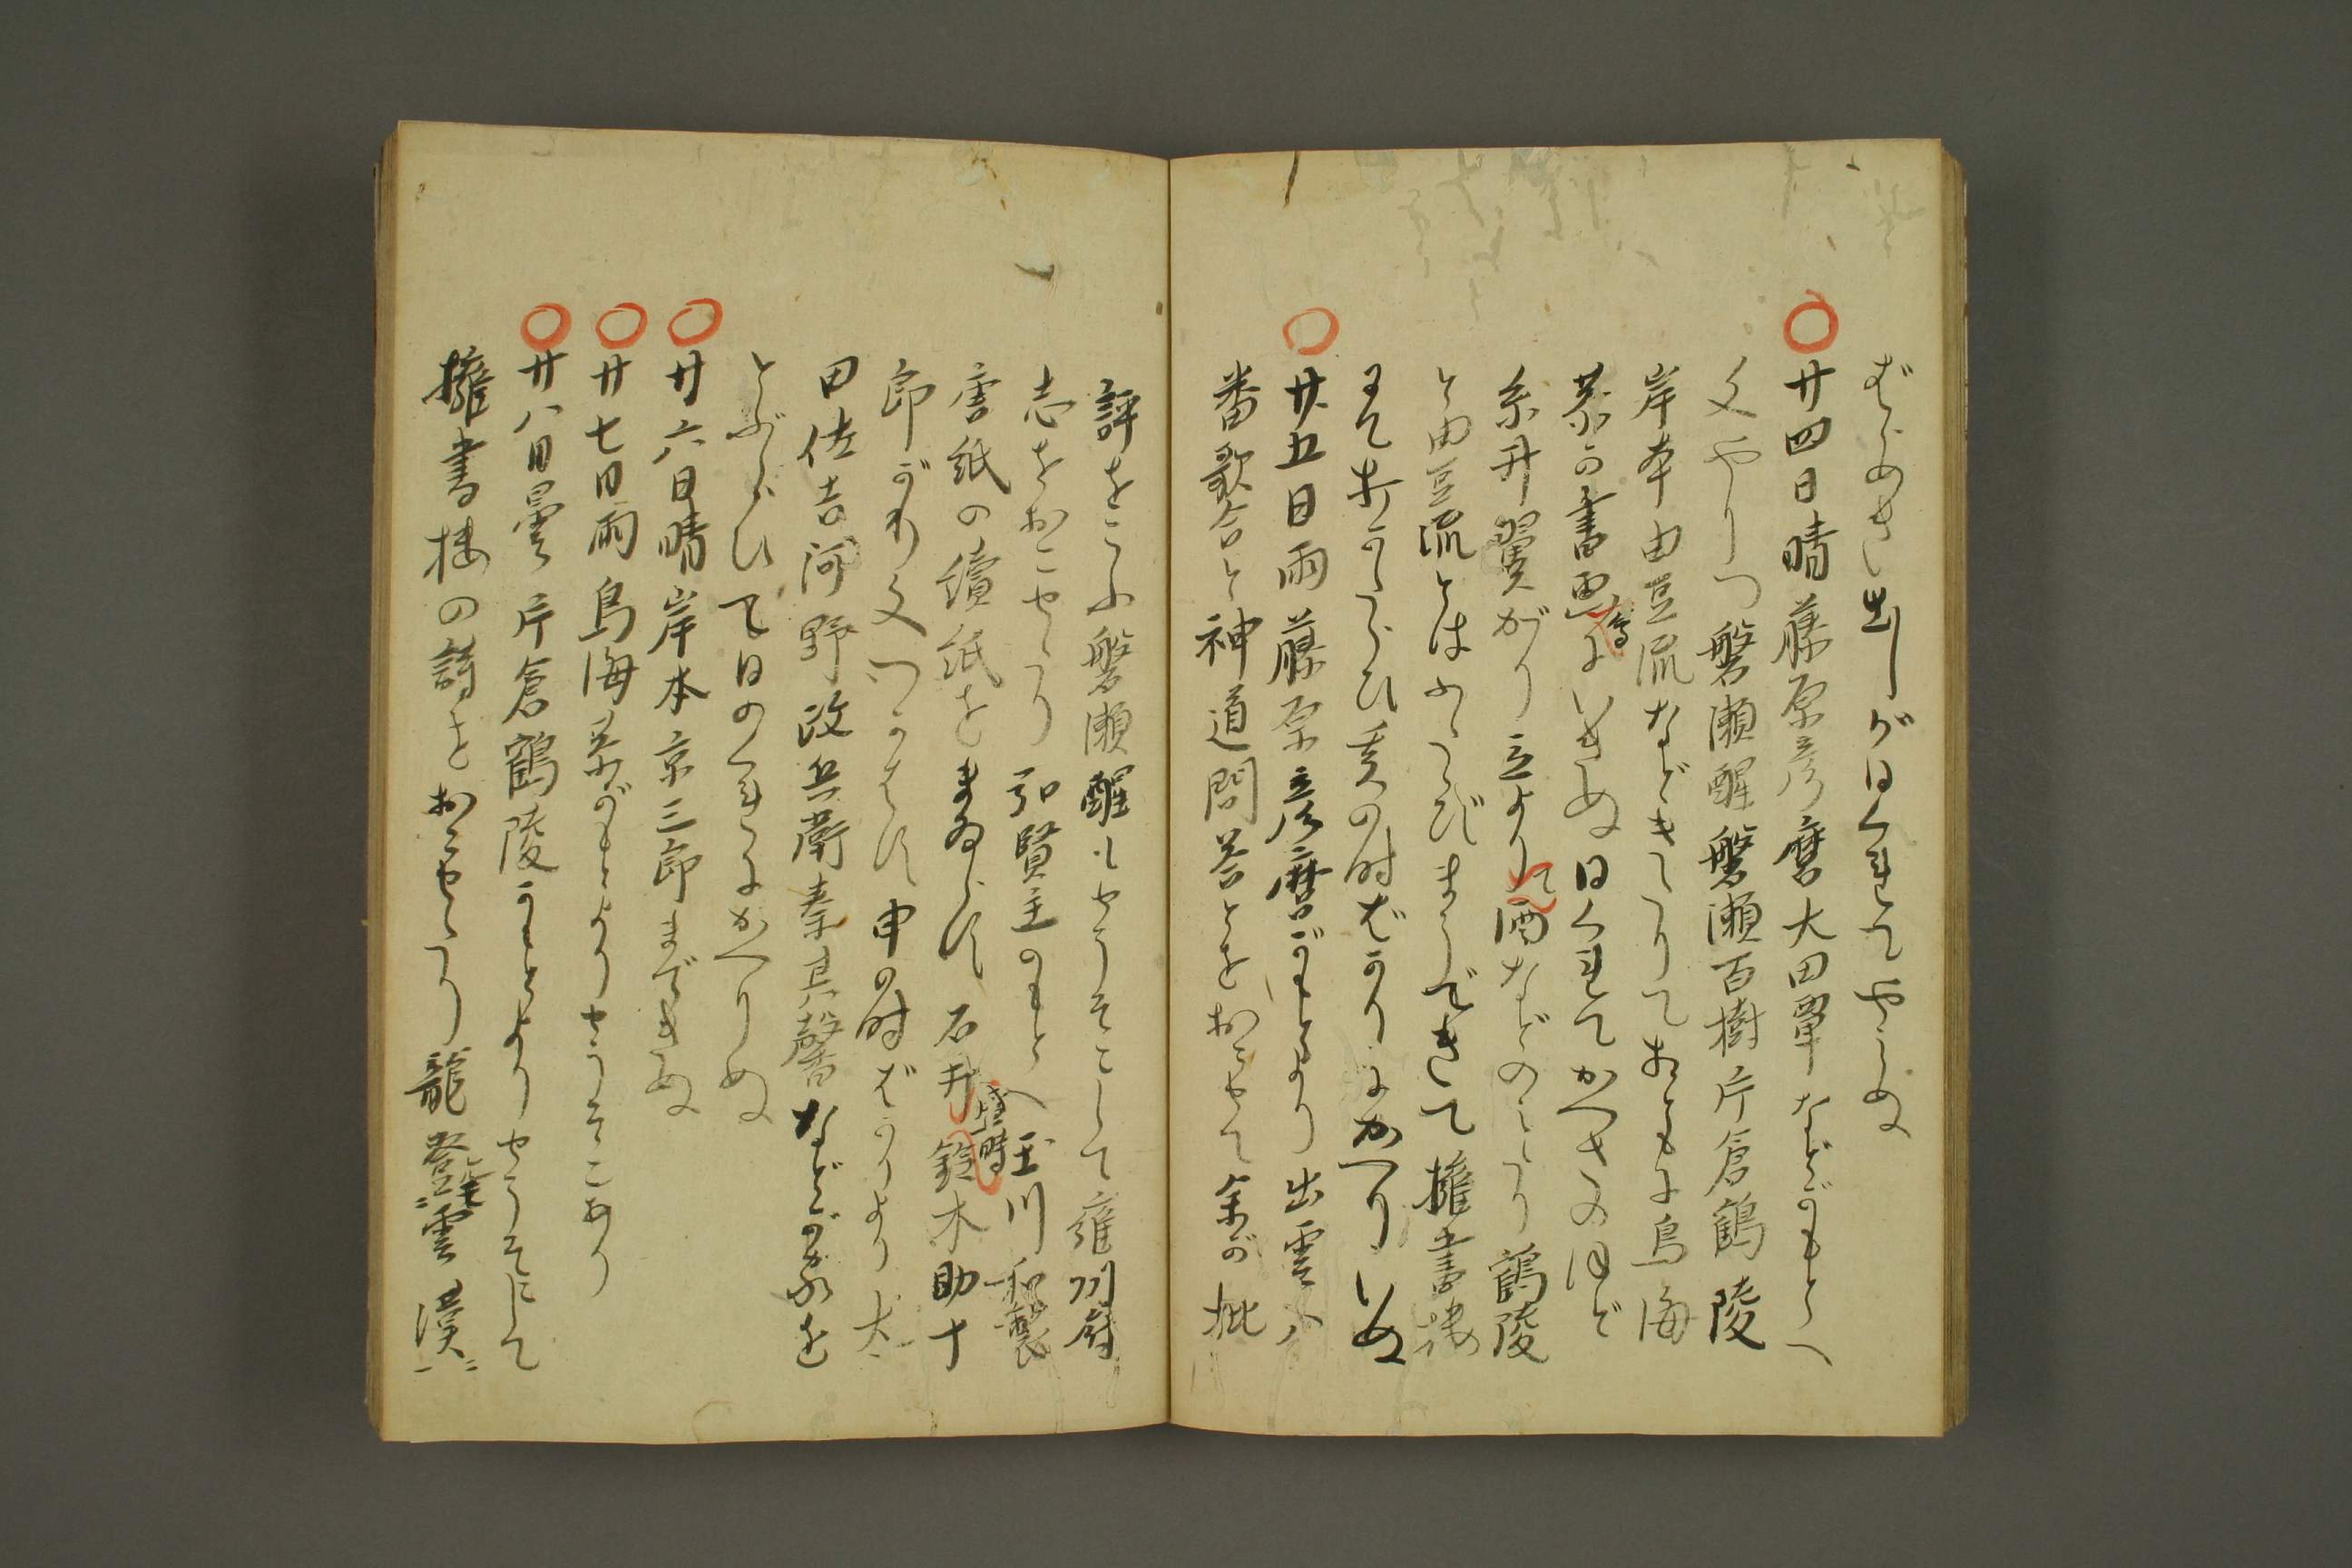 ばらめき出しが日くれてやみぬ
廿四日晴藤原彦麿大田覃などがもとへ
文やりつ磐瀬醒磐瀬百樹片倉鶴陵
岸本由豆流などきたりておともに鳥海
恭の書画にいきぬ日くれてかへさのほど
糸井翼がり立より酒などのみたり鶴陵
と由豆流とはふたゝびまうできて擁書楼
にてものかたらひ亥の時ばかりにかへりいぬ
廿五日雨藤原彦麿がもとより出雲八
番歌合と神道問答とをおこせて余が批
評をこふ磐瀬醒もせうそこして雍州府
志をおこせたり弘賢主のもとへ玉川和製
唐紙の續紙をまゐらす石井鈴木助十
郎がり文つかはす申の時ばかりより太
田佐吉河野政兵衛秦其馨などが家を
とぶらひて日のくれにかへりぬ
廿六日晴岸本京三郎まできぬ
廿七日雨鳥海恭がもとよりせうそこあり
廿八日曇片倉鶴陵がもとよりせうそこして
擁書楼の詩をおこせたり龍登雲漢